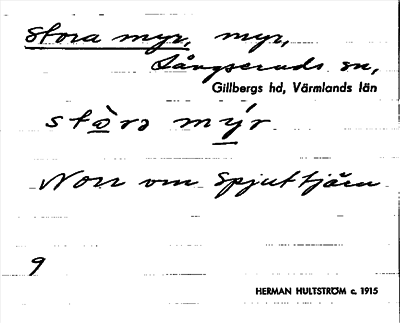 Stora myr, myr,
Långseruds sn,
Gillbergs hd, Värmlands län
stòrə mýr
Norr om Spjuttjärn
9
HERMAN HULTSTRÖM c. 1915